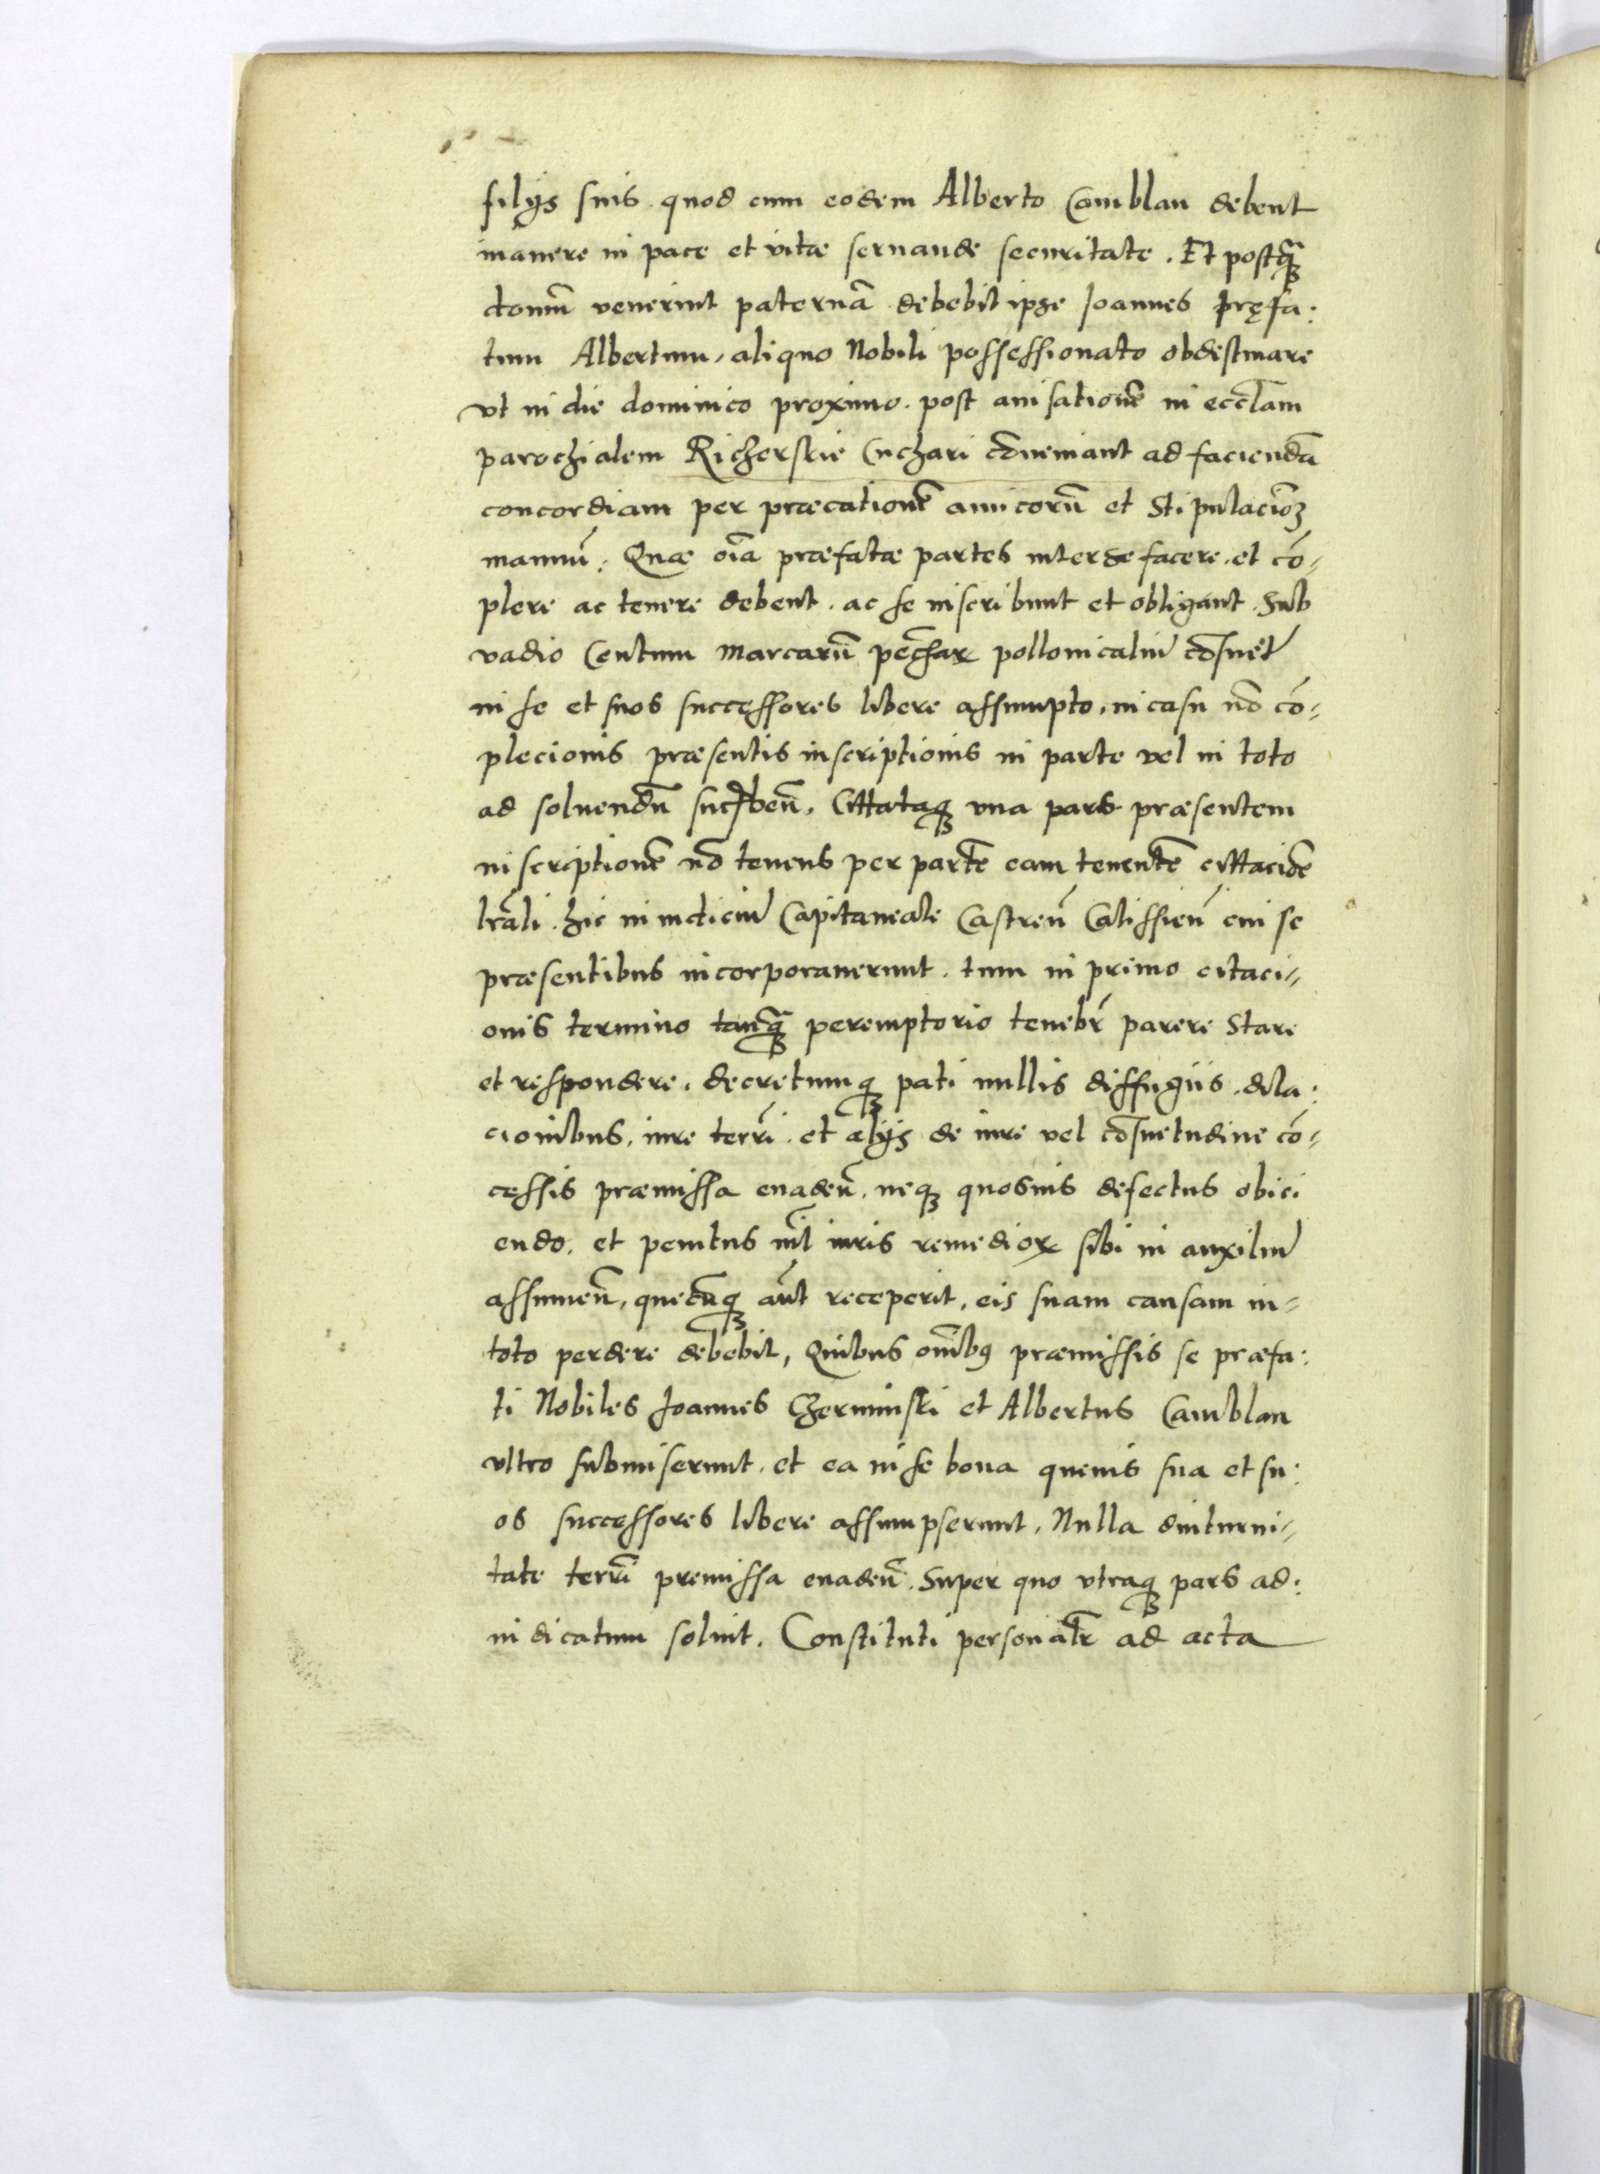 filijs suis quod cum eodem Alberto Camblan debent
manere in pace et vitae servande securitate. Et postq̃
domũ venerint paternã debebit ipse Joannes pręfa:
tum Albertum, aliquo Nobili possessionato obdestinare
vt in die dominico proximo post avisationẽ in ecclãm
parochialem Richerskie Cuchari cõveniant ad faciendã
concordiam per praecationẽ amicorũ et stipulaciõẽ
manuũ. Quae oĩa praefatae partes inter se facere et cõ-
plere ac tenere debent. ac se inscribunt et obligant. Sub
vadio Centum Marcarũ pecc̃har pollonicaliũ cõsuet̃
in se et suos successores libere assumpto, in casu nõ cõ-
plecionis praesentis inscriptionis in parte vel in toto
ad solvendũ succũbeñ. Cittataq̃ una pars praesentem
inscriptionẽ nõ tenens per partẽ eam tenentẽ cittaciõe
lrãli. hic in iudiciũ Capitaneale Castreñ Calissieñ cui se
praesentibus incorporaverunt. tum in primo citaci-
onis termino tanq̃ peremptorio tenebr̃ parere Stare
et respondere. decretumq̃ pati nullis diffugiis. dila:
cionibus, iure terrĩ. et alijs de iure vel cõsuetudine cõ-
cessis praemissa evadeñ. neq̃ quosvis defectus obici
endo. et penitus nĩl iuris remediorx sibi in auxiliũ
assumeñ, quecũq̃ aũt receperit, eis suam causam in-
toto perdere debebit, Quibus om̃ibus praemissis se praefa:
ti Nobiles Joannes Czerminski et Albertus Camblan
ultro submiserunt. et ea in se bona quevis sua et su:
os successores libere assumpserunt. Nulla diuturni-
tate terrĩ premissa evadeñ. Super quo utraq̃ pars ad:
iudicatum solvit. Constituti personalr̃ ad acta